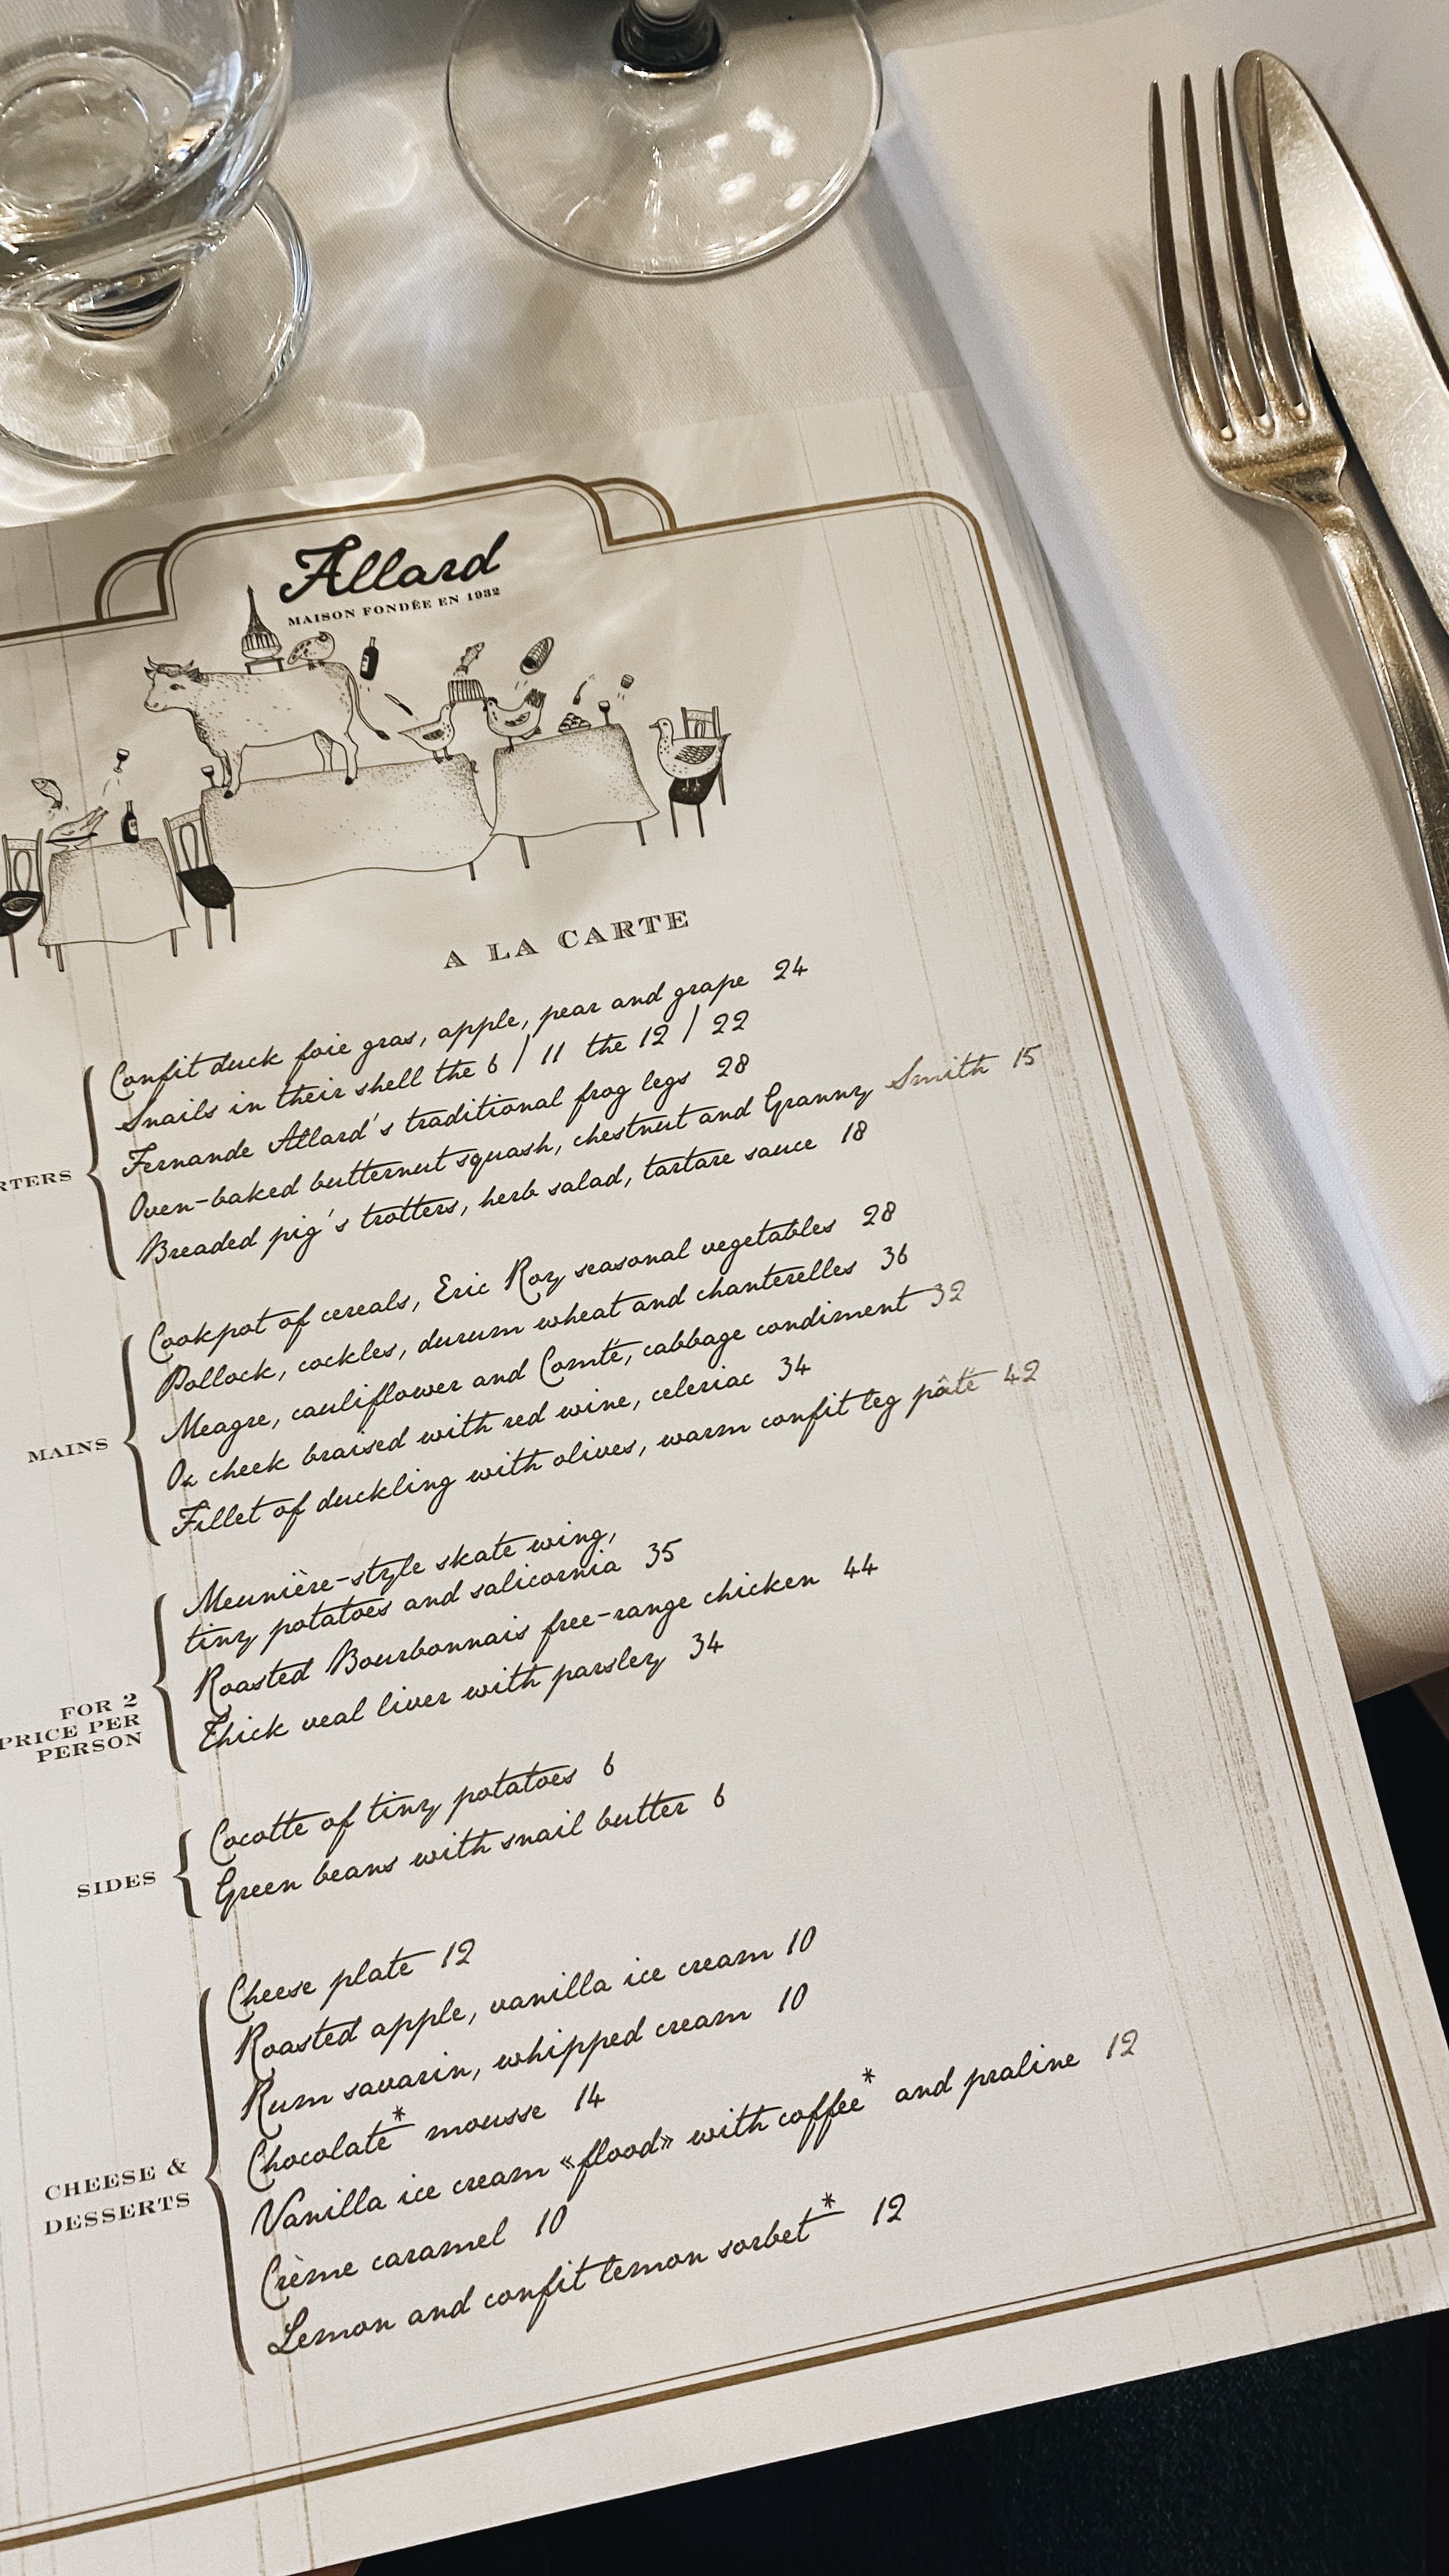 Allard
MAISON FONDÉE EN 1932
A LA CARTE
RTERS
Confit duck foie gras, apple, pear and grape 24
Snails in their shell the 6 / 11 the 12 / 22
Fernande Allard's traditional frog legs 28
Oven-baked butternut squash, chestnut and Granny Smith 15
Breaded pig's trotters, herb salad, tartare sauce 18
MAINS
Cookpot of cereals, Eric Roy seasonal vegetables 28
Pollock, cockles, durum wheat and chanterelles 36
Meagre, cauliflower and Comté, cabbage condiment 32
Ox cheek braised with red wine, celeriac 34
Fillet of duckling with olives, warm confit leg pâté 42
FOR 2
PRICE PER
PERSON
Meunière-style skate wing,
tiny potatoes and salicornia 35
Roasted Bourbonnais free-range chicken 44
Thick veal liver with parsley 34
SIDES
Cocotte of tiny potatoes 6
Green beans with snail butter 6
CHEESE &
DESSERTS
Cheese plate 12
Roasted apple, vanilla ice cream 10
Rum savarin, whipped cream 10
Chocolate* mousse 14
Vanilla ice cream «flood» with coffee* and praline 12
Crème caramel 10
Lemon and confit lemon sorbet* 12